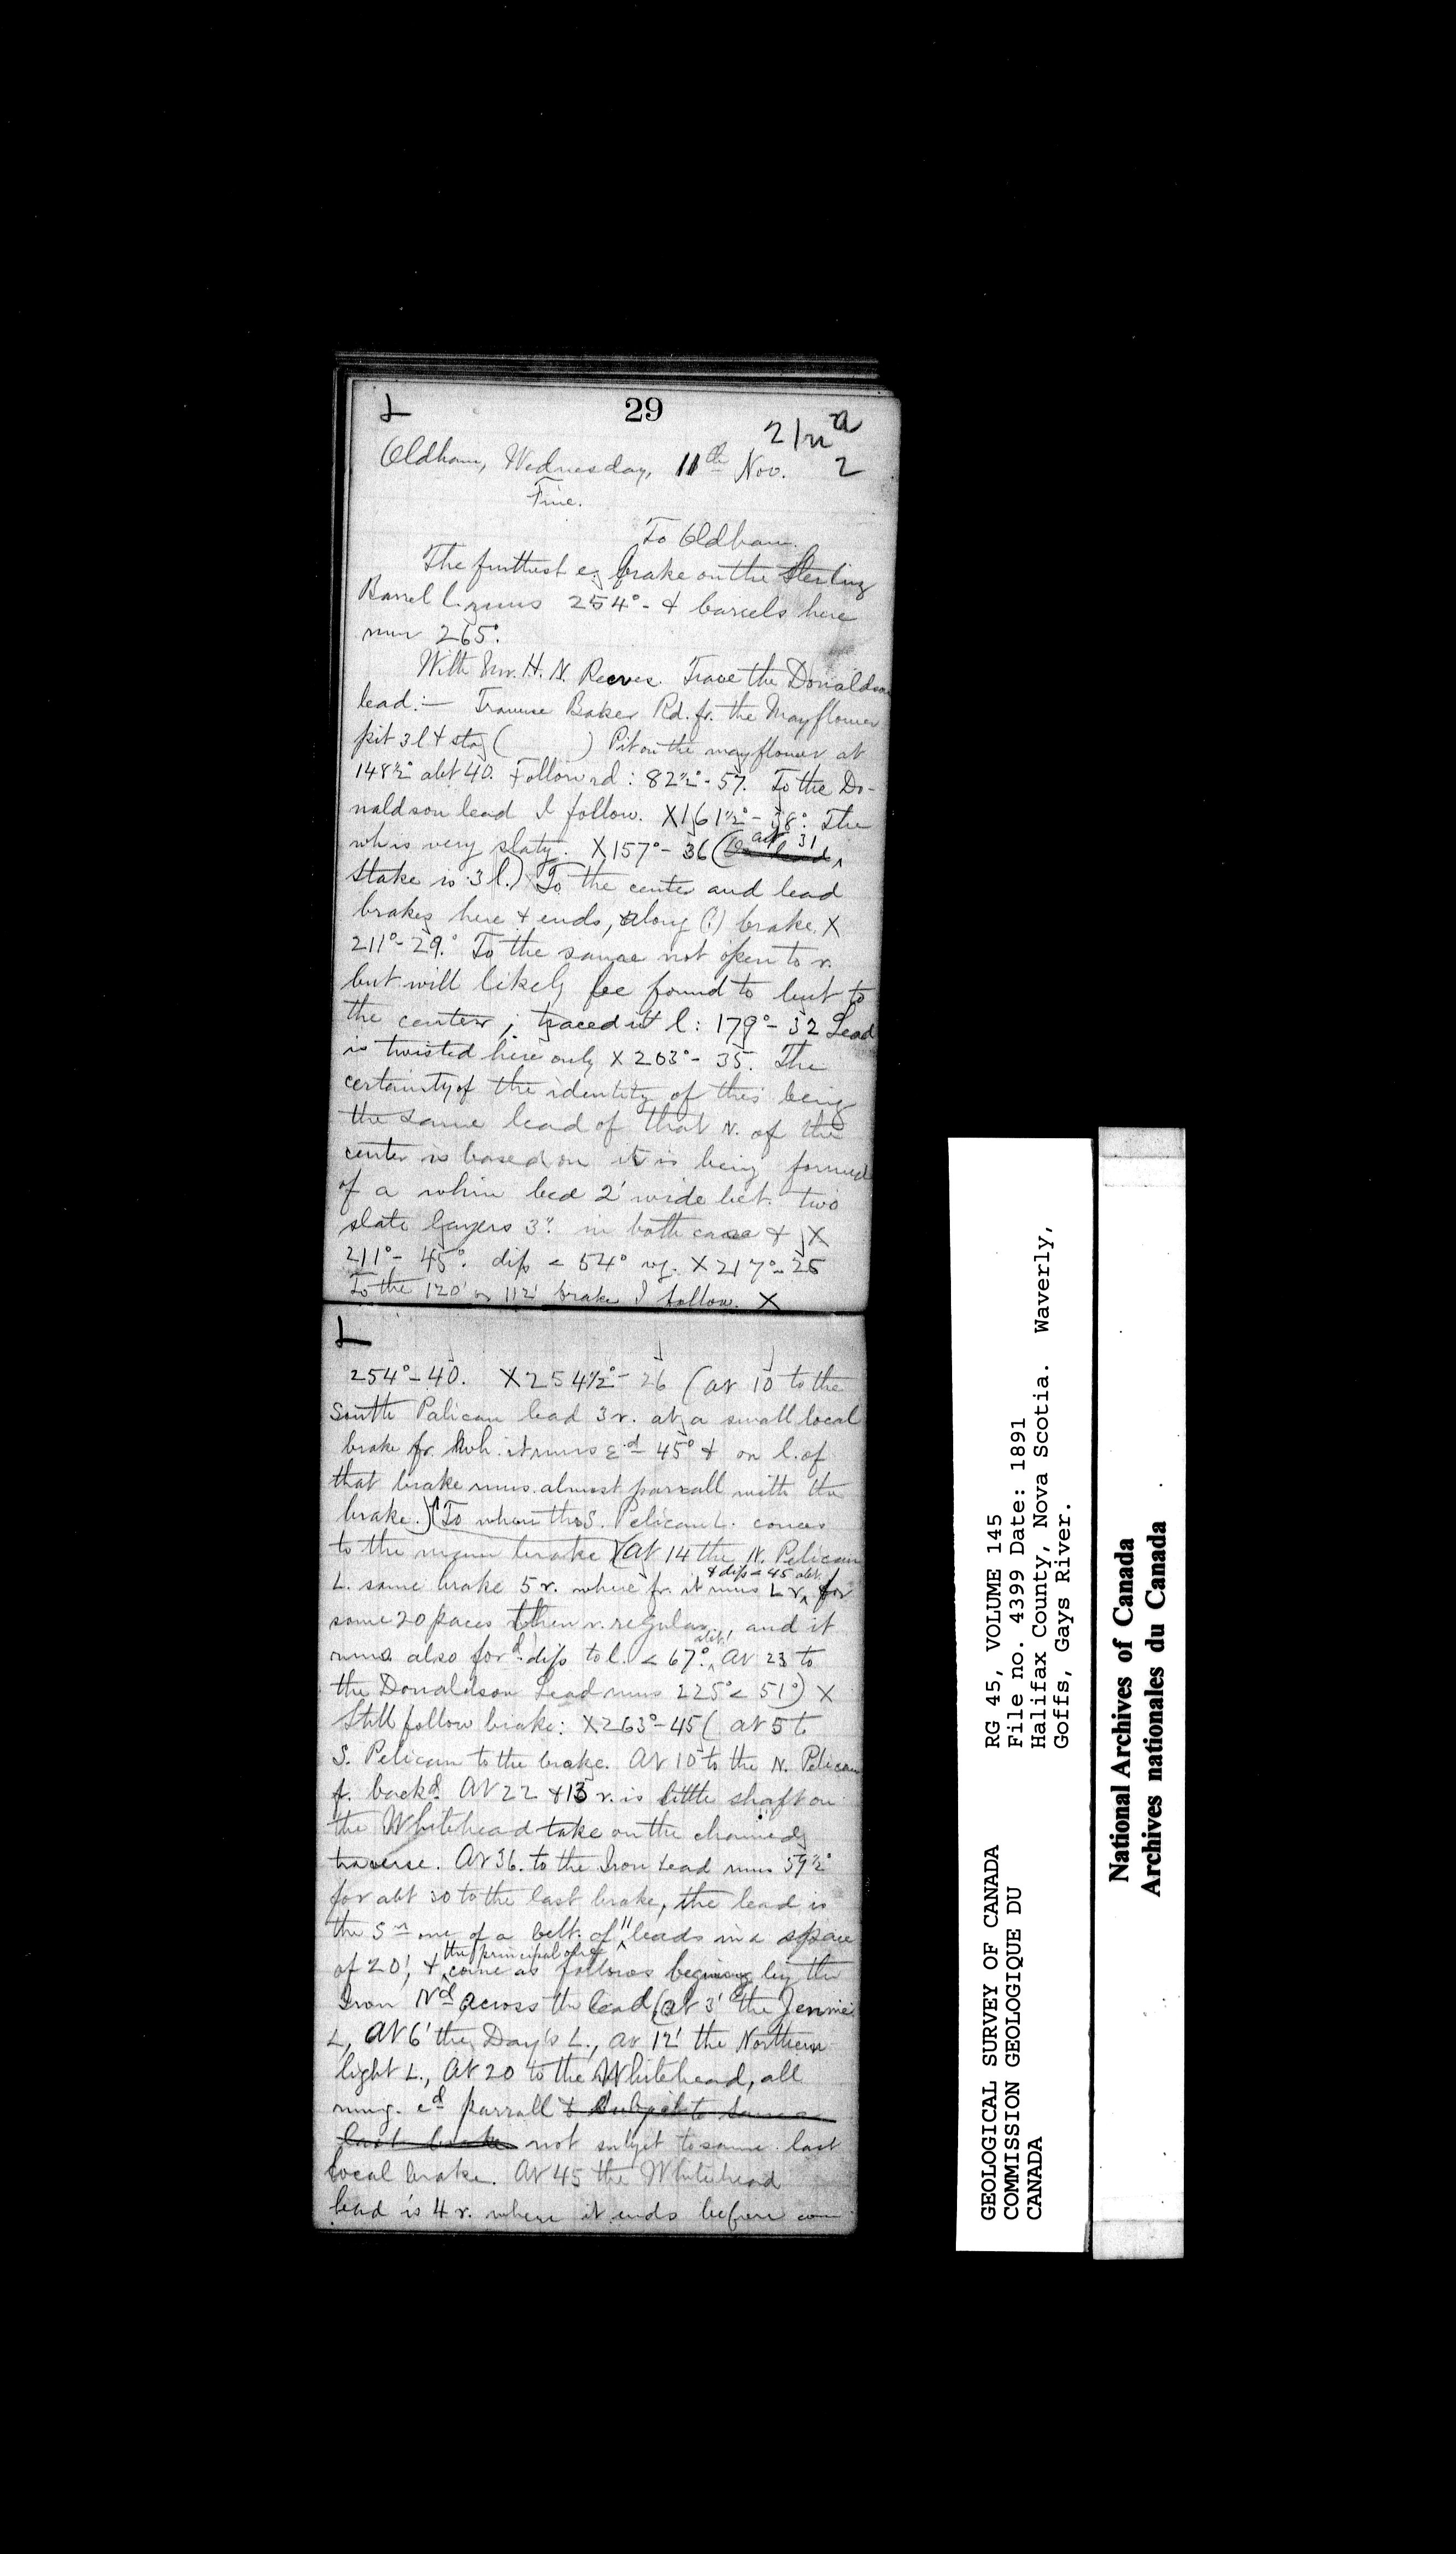 29
Oldham, Wednesday, 11th Nov.
2
Fine.
To Oldham.
The furthest e. brake on the Sterling
Barrel l. runs 254° - & barrels here
run 265°.
With Mr. H. N. Reeves. Trace the Donaldson
lead:— Traverse Baker Rd. fr. the Mayflower
pit 3 l & stag ( ) Pit on the mayflower at
148½° abt 40. Follow rd: 82½° - 57. To the Do-
naldson lead I follow. X 161½° - 38°. The
wh is very slaty. X 157° - 36 ( at 31
Stake is 3 l.) To the center and lead
brakes here & ends, along (?) brake. X
211° - 29.° To the same not open to r.
but will likely be found to but to
the center; traced it l: 179° - 32 Lead
is twisted here only X 203° - 35. The
certainty of the identity of this being
the same lead of that N. of the
center is based on it is being formed
of a whin bed 2' wide bet. two
slate layers 3". in both case & X
211° - 45°. dip < 54° X 217° - 25
To the 120' or 112' brake I follow. X
254° - 40. X 254½° - 26 (at 10 to the
South Palican lead 3 r. at a small local
brake fr. wh. it runs Ed 45° & on l. of
that brake runs almost parrall with the
brake.) (To when the S. Pelican L. comes
to the brake) (At 14 the N. Pelican
& dip < 45 abt.
L. same brake 5 r. where fr. it runs L r. for
some 20 paces then r. regular, and it
abt.
runs also ford. dip to l. < 67°. At 23 to
the Donaldson Lead runs 225° < 51°) X
Still follow brake: X 263° - 45 (at 5 to
S. Pelican to the brake. At 10 to the N. Pelican
f. backd. At 22 & 13 r. is little shaft on
the Whitehead take on the chained
traverse. At 36. to the Iron Lead runs 59½°
for abt 30 to the last brake, the lead is
the Sn one of a belt of 11 leads in a space
the principal ones
of 20', & come as follows begining by the
Iron Nd across the lead (at 3' the Jennie
L, At 6' the Day's L., at 12' the Northern
light L., At 20 to the Whitehead, all
rung. ed parrall & subject to same
last brake not subjet to same last
local brake. At 45 the Whitehead
lead is 4 r. where it ends before
GEOLOGICAL SURVEY OF CANADA
COMMISSION GEOLOGIQUE DU
CANADA
RG 45, VOLUME 145
File no. 4399 Date: 1891
Halifax County, Nova Scotia. Waverly,
Goffs, Gays River.
National Archives of Canada
Archives nationales du Canada